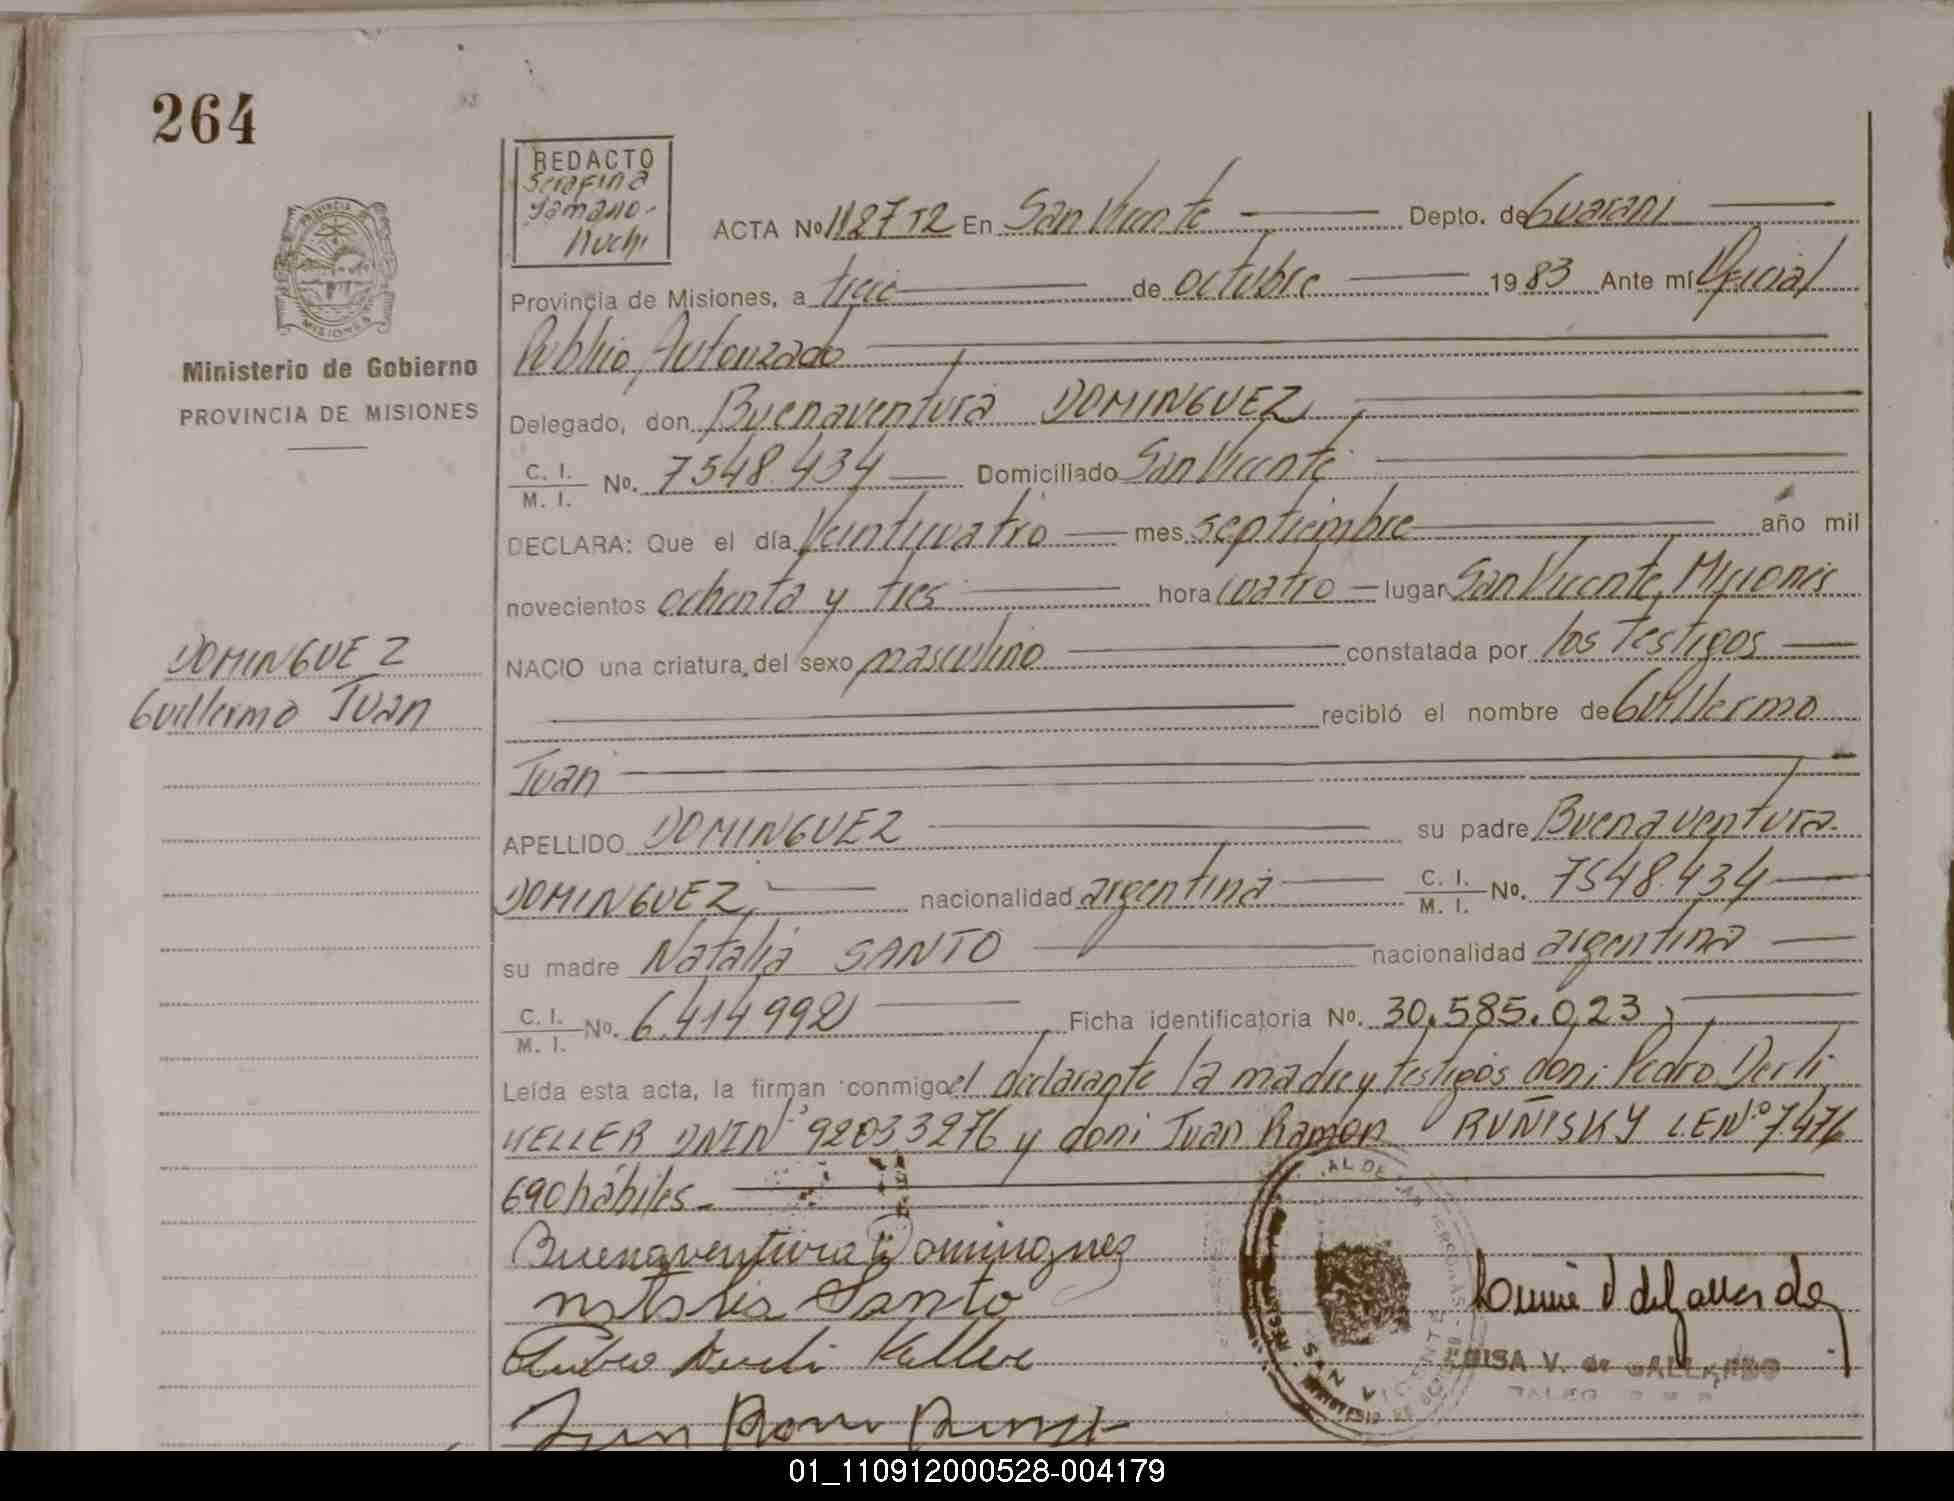 264
REDACTO
Serafina
Yamano-
Kuchi
PROVINCIA DE
MISIONES
Ministerio de Gobierno
PROVINCIA DE MISIONES
ACTA No 1127 T2 En San Vicente Depto. de Guarani
Provincia de Misiones, a trece de octubre 1983 Ante mí Oficial
Publico, Autorizado
Delegado, don Buenaventura DOMINGUEZ,
C. I. / M. I. No. 7548.434 Domiciliado San Vicente
DECLARA: Que el día Veinticuatro mes septiembre año mil
novecientos ochenta y tres hora cuatro lugar San Vicente, Misiones
NACIO una criatura del sexo masculino constatada por los testigos
recibió el nombre de Guillermo
Juan
APELLIDO DOMINGUEZ su padre Buenaventura
DOMINGUEZ, nacionalidad argentina C. I. / M. I. No. 7548.434
su madre Natalia SANTO nacionalidad argentina
C. I. / M. I. No. 6.414992 Ficha identificatoria No. 30.585.023,
Leída esta acta, la firman conmigo el declarante la madre y testigos don: Pedro Derli
KELLER DNI N° 92033276 y don: Juan Ramon RUÑISKY LE N° 7476
690 hábiles.-
DOMINGUEZ
Guillermo Juan
Buenaventura Dominguez
natalia Santo
Pedro Derli Keller
Juan Ramon
SAN VICENTE
LUISA V. de GALLARDO
01_110912000528-004179